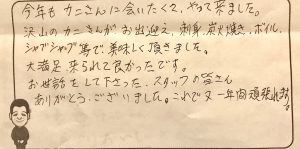 今年もカニさんに会いたくて、やって来ました。
沢山のカニさんがお出迎え、刺身、炭火焼き、ボイル、
シャブシャブ等で、美味しく頂きました。
大満足、来られて良かったです。
お世話をして下さった、スタッフの皆さん
ありがとうございました。これで又一年間頑張れます。